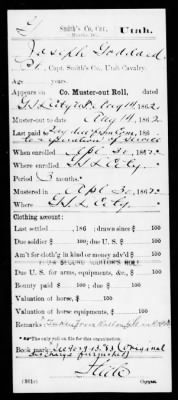 Smith's Co. Cav., Utah.
Joseph Goddard
Pt., Capt. Smith's Co., Utah Cavalry.
Age years.
Appears on
Co. Muster-out Roll, dated
G S L City U.T. Aug 14, 1862.
Muster-out to Aug 14, 1862.
Last paid to
to expiration of service
When enrolled Apl 30, 1862.
Where enrolled G S L City
Period 3 months.
Mustered in Apl 30, 1862.
Where G S L City
Clothing account:
Last settled , 186 ; drawn since $ 100
Due soldier $ 100; due U. S. $ 100
Am't for cloth'g in kind or money adv'd $ 100
Due U. S. for arms, equipments, &c., $ 100
Bounty paid $ 100; due $ 100
Valuation of horse, $ 100
Valuation of horse equipments, $ 100
Remarks
Book mark
(Original
discharge furnished)
(361c) Copyist.